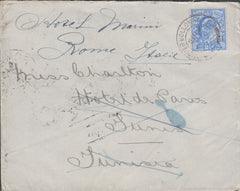 Hotel Marini
Rome Italie
Miss Charlton
Hotel de Paris
Tunis
Tunisia